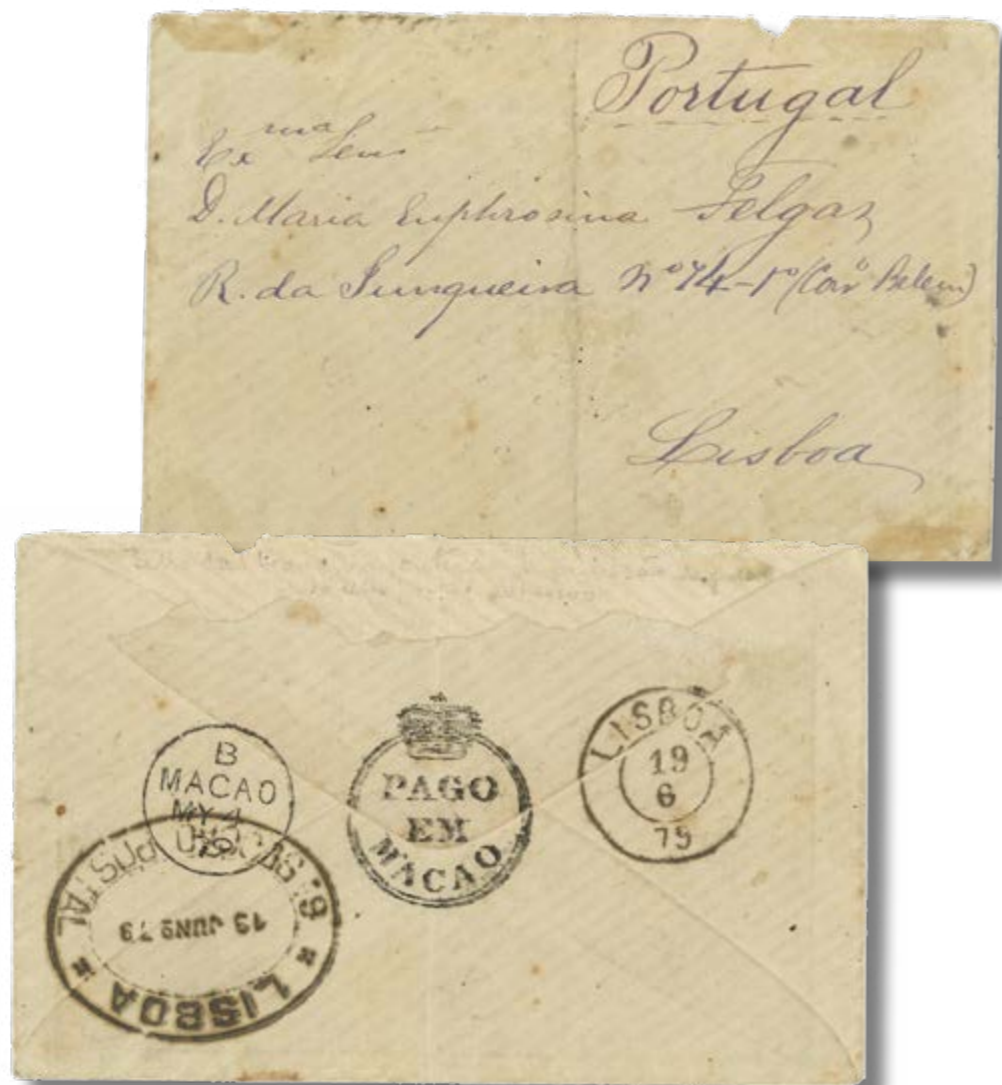 Portugal
Ex ma
D. Maria Euphrosina Felgas
R. da Junqueira Nº 74-1º ( Belem)
Lisboa
B
MACAO
MY 4
PAGO
EM
MACAO
LISBOA
19
6
75
POSTAL
LISBOA